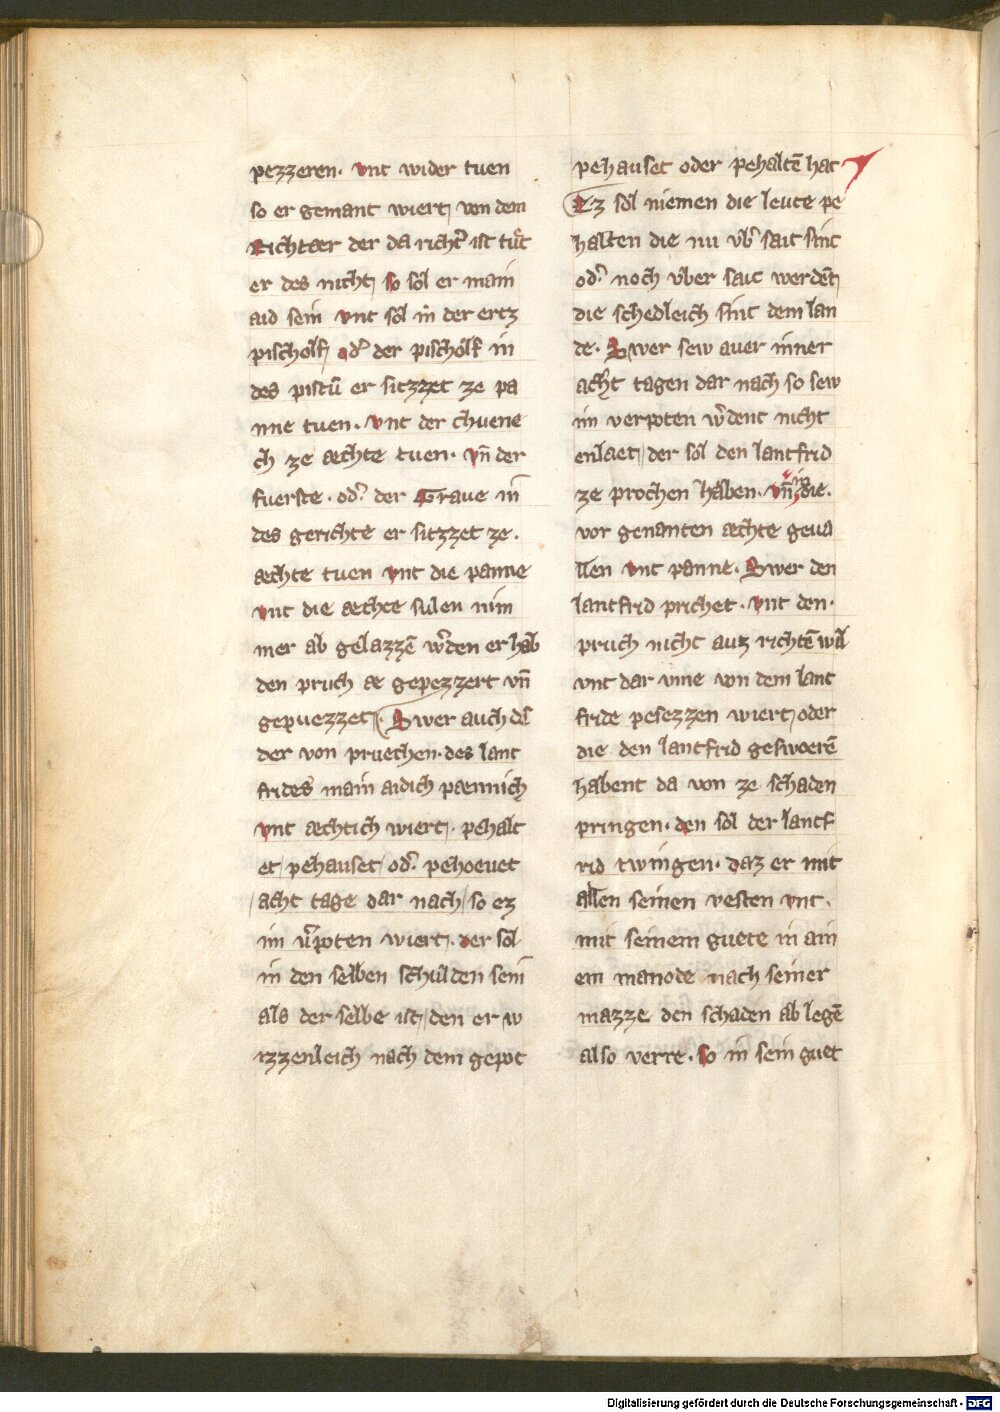 pezzeren. vnt wider tuen
so er gemant wiert, von dem
Richtaer der da richt̉ ist tuͤt
er des nicht, so sol er main
aid sein vnt sol in der ertz
pischolf, od̉ der pischolf in
des pistū er sitzzet ze pa
nne tuen. vnt der chuene
ch ze aechte tuen. vn̄ der
fuerste. od̉ der Graue in
des gerichte er sitzzet ze.
aechte tuen vnt die panne
vnt die aechte sulen nim
mer ab gelazzē w̉den er hab
den pruch ae gepezzert vn̄
gepuezzet. Swer auch
der von pruechen. des lant
frides main aidich paennich
vnt aechtich wiert. pehalt
et, pehauset, od̉ pehoeuet
acht tage dar nach, so ez
im v̉poten wiert. der sol
in den selben schulden sein
als der selbe ist, den er w
izzenleich nach dem gepot
pehauset oder pehaltē hat
Ez sol niemen die leute pe
halten die nu vb̉ sait sint
od̉ noch vber sait werdēt,
die schedleich sint dem lan
de. Swer sew auer inner
acht tagen dar nach so sew
im verpoten w̉dent nicht
enlaet, der sol den lantfrid
ze prochen haben. vn̄ in die.
vor genanten aechte geua
llen vnt panne. Swer den
lantfrid prichet. vnt den.
pruch nicht auz richtē wil
vnt dar vme von dem lant
fride pesezzen wiert, oder
die den lantfrid geswoerē
habent da von ze schaden
pringen. den sol der lantf
rid twingen. daz er mit
allen seinen vesten vnt.
mit seinem guete in ain
em manode nach seiner
mazze den schaden ab legē
also verre. so in sein guet
Digitalisierung gefördert durch die Deutsche Forschungsgemeinschaft - DFG